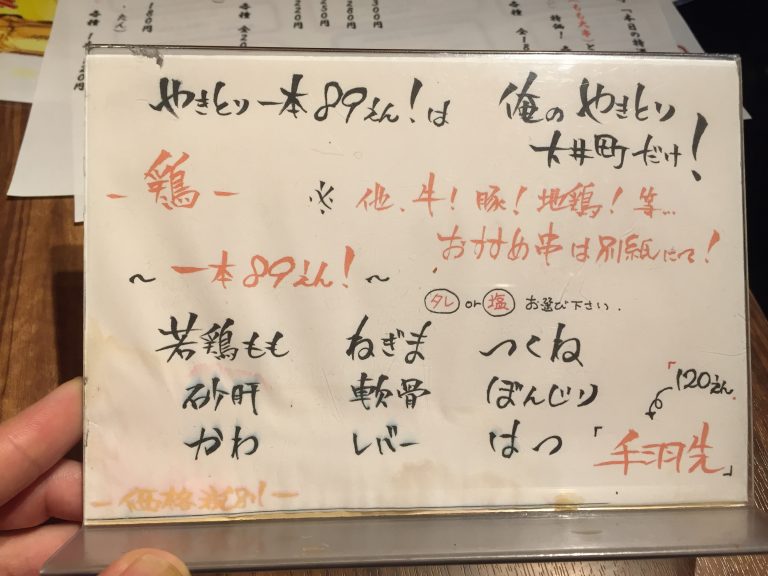 やきとり一本89えん!は 俺のやきとり
大井町だけ!
-鶏-
※ 他、牛!豚!地鶏!等...
おすすめ串は別紙にて!
~一本89えん!~
タレ or 塩 お選び下さい.
若鶏もも ねぎま つくね
砂肝 軟骨 ぼんじり
「120えん.
かわ レバー はつ 「手羽先」
-価格税別-